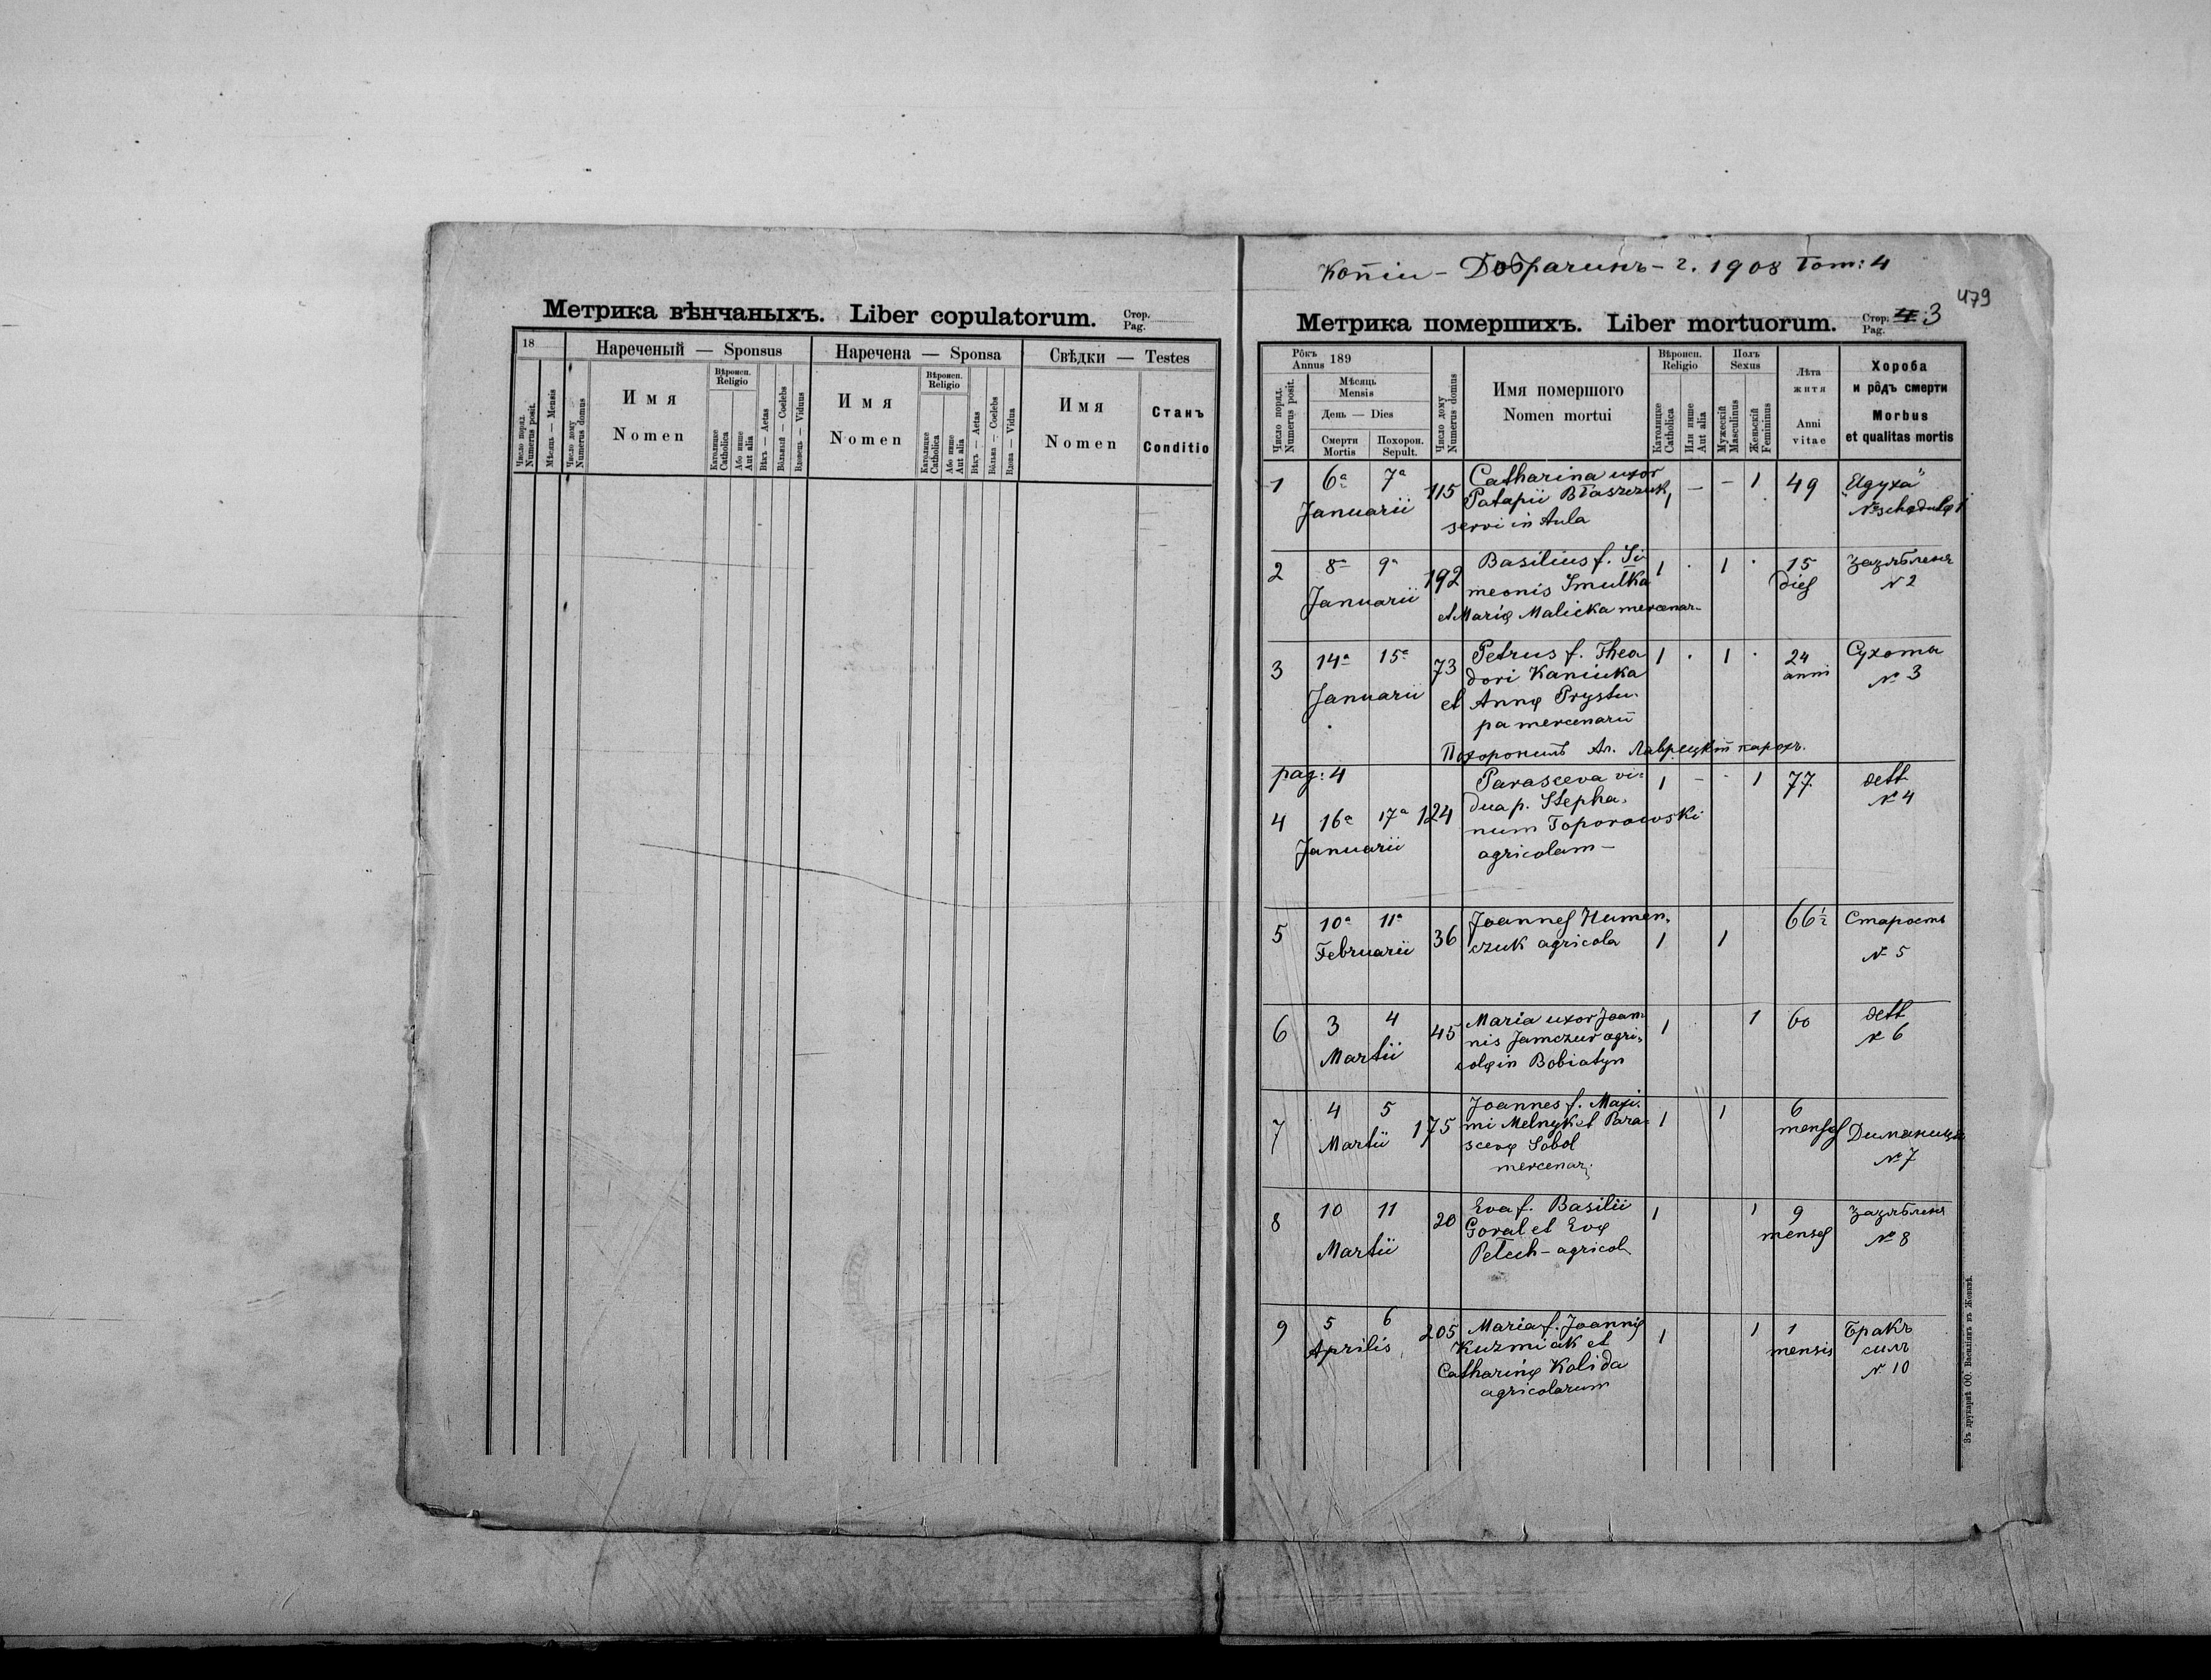 Метрика вѣнчаныхъ. Liber copulatorum. Стор. Pag.
18
Нареченый — Sponsus
Наречена — Sponsa
Свѣдки — Testes
Число поряд. Numerus posit.
Мѣсяць — Mensis
Число дому Numerus domus
Имя Nomen
Вѣроисп. Religio
Католицке Catholica
Або инше Aut alia
Вѣкъ — Aetas
Вôльный — Coelebs
Вдовець — Viduus
Имя Nomen
Вѣроисп. Religio
Католицке Catholica
Або инше Aut alia
Вѣкъ — Aetas
Вôльна — Coelebs
Вдова — Vidua
Имя Nomen
Станъ Conditio
Копіи - Добрачинъ - г. 1908 Tom: 4
479
Метрика помершихъ. Liber mortuorum. Стор. Pag. 3
Рôкъ Annus 189
Число поряд. Numerus posit.
Мѣсяць Mensis
День — Dies
Смерти Mortis
Похорон. Sepult.
Число дому Numerus domus
Имя помершого
Nomen mortui
Вѣроисп. Religio
Католицке Catholica
Или инше Aut alia
Полъ Sexus
Мужескій Masculinus
Женьскій Femininus
Лѣта житя
Anni vitae
Хороба
и рôдъ смерти
Morbus
et qualitas mortis
1 6a 7a Januarii 115 Catharina uxor
Patapii Błaszczuk
servi in Aula
1 — — 1 49
№ schedulę 1
2 8a 9a Januarii 192 Basilius f. Si-
meonis Smulka
et Marię Malicka mercenar.
1 . 1 . 15 dies
№ 2
3 14a 15a Januarii 73 Petrus f. Theo
dori Kaniuka
et Annę Prystu-
pa mercenarii
1 . 1 . 24 anni Сухоты
№ 3
Похоронилъ Ал. Лаврецкій парохъ.
pag: 4
4 16a 17a Januarii 124 Parasceva vi-
dua p. Stepha-
num Toporowski
agricolam —
1 - . 1 77. dett
№ 4
5 10a 11a Februarii 36 Joannes Humen-
czuk agricola
1 1 66½ Старость
№ 5
6 3 4 Martii 45 Maria uxor Joan-
nis Jamczur agri-
colę in Bobiatyn
1 1 60 dett
№ 6
7 4 5 Martii 175 Joannes f. Maxi-
mi Melnyk et Para-
scevę Sobol
mercenar.
1 1 6 menses
№ 7
8 10 11 Martii 20 Eva f. Basilii
Goral et Evę
Petech - agricol.
1 1 9 menses
№ 8
9 5 6 Aprilis 205 Maria f. Joannis
Kuzmiak et
Catharinę Kolida
agricolarum
1 1 1 mensis Бракъ
силъ
№ 10
Зъ друкарнѣ ОО. Василіянъ въ Жовквѣ.